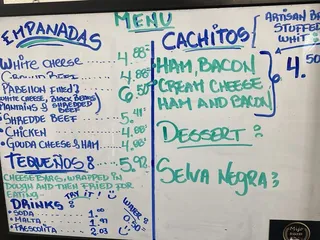 MENU
EMPANADAS
WHITE CHEESE 4.88
4.88
PABELLON FIRED 6.50
WHITE CHEESE, BLACK BEANS
PLANTAINS & SHREDDED BEEF
SHREDDE BEEF 5.41
• CHICKEN 4.88
• GOUDA CHEESE & HAM 4.88
TEQUEÑOS 8 5.92
CHEESE BARS, WRAPPED IN
DOUGH AND THEN FRIED FOR
EATING
TRY IT!
DRINKS
• SODA 1.
• MALTA 1.
• FRESCOLITA 2.03
WATER
0.50
CACHITOS
ARTISAN
STUFFED
WHIT
HAM, BACON
CREAM CHEESE
HAM AND BACON
4.50
DESSERT
SELVA NEGRA